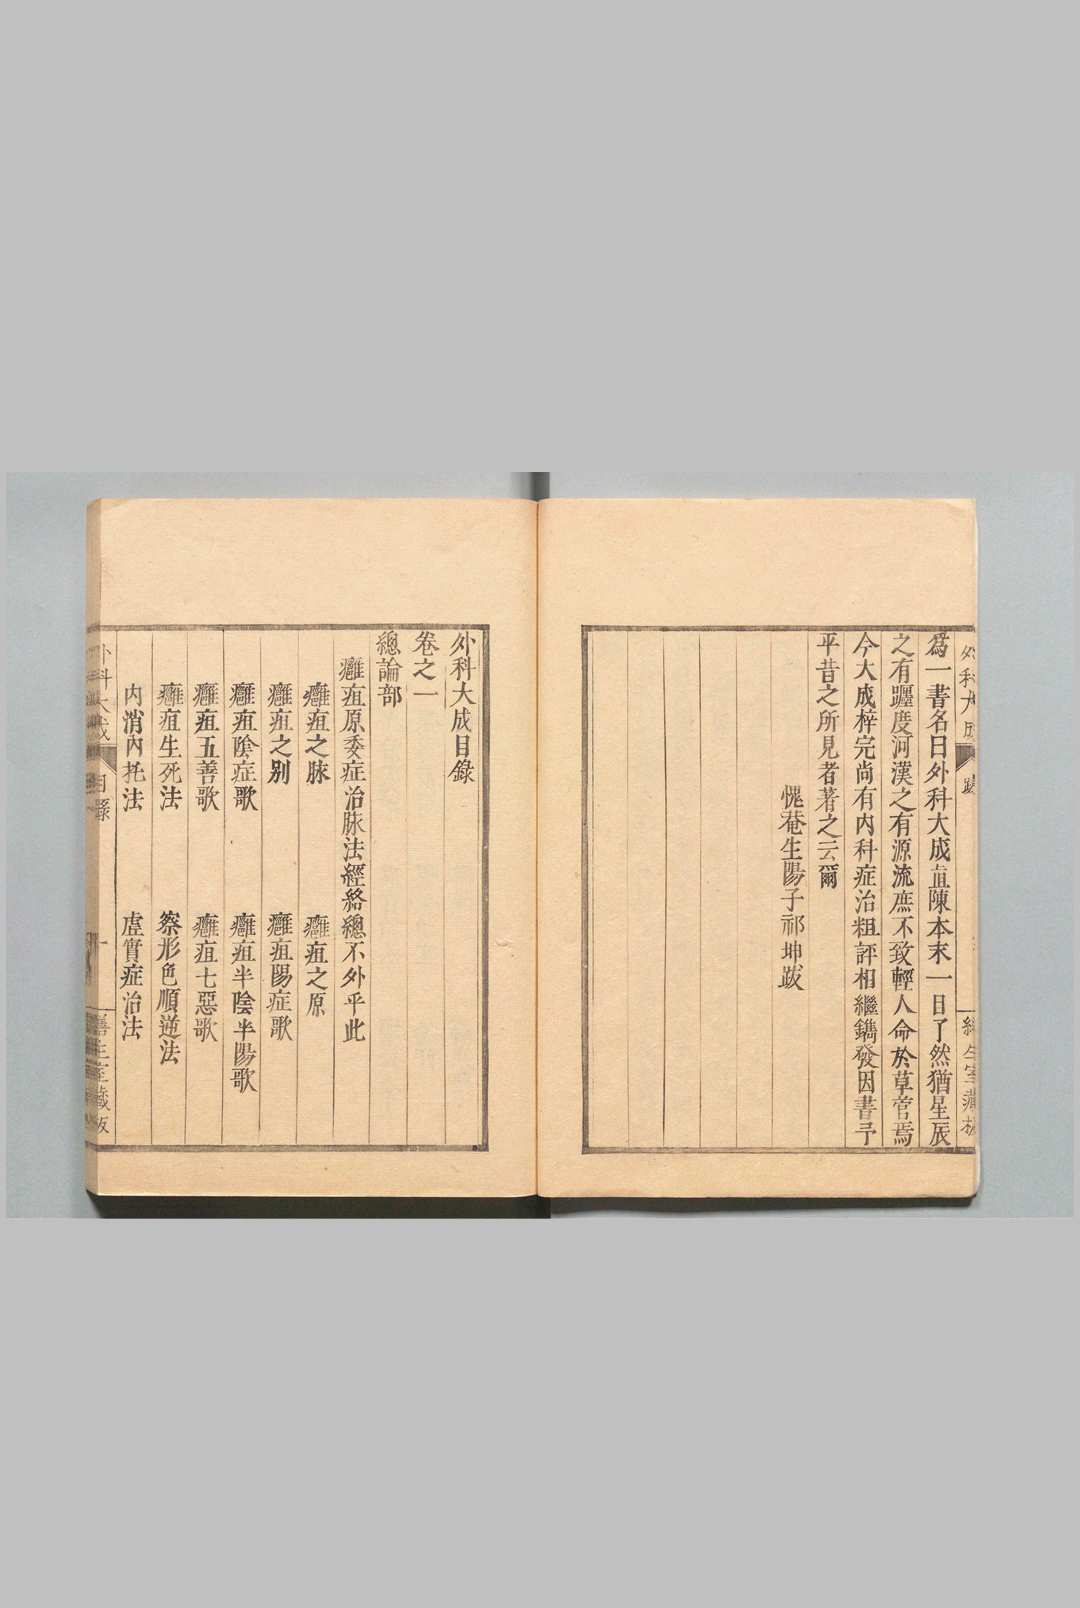 爲一書名曰外科大成直陳本末一目了然猶星辰
之有躔度河漢之有源流庶不致輕人命於草菅焉
今大成梓完尚有內科症治粗評相繼鐫發因書予
平昔之所見者著之云爾
愧菴生陽子祁坤跋
外科大成目錄
卷之一
總論部
癰疽原委症治脉法經絡總不外乎此
癰疽之脉
癰疽之原
癰疽之別
癰疽陽症歌
癰疽陰症歌
癰疽半陰半陽歌
癰疽五善歌
癰疽七惡歌
癰疽生死法
察形色順逆法
內消內托法
虛實症治法
外科大成
目錄
一